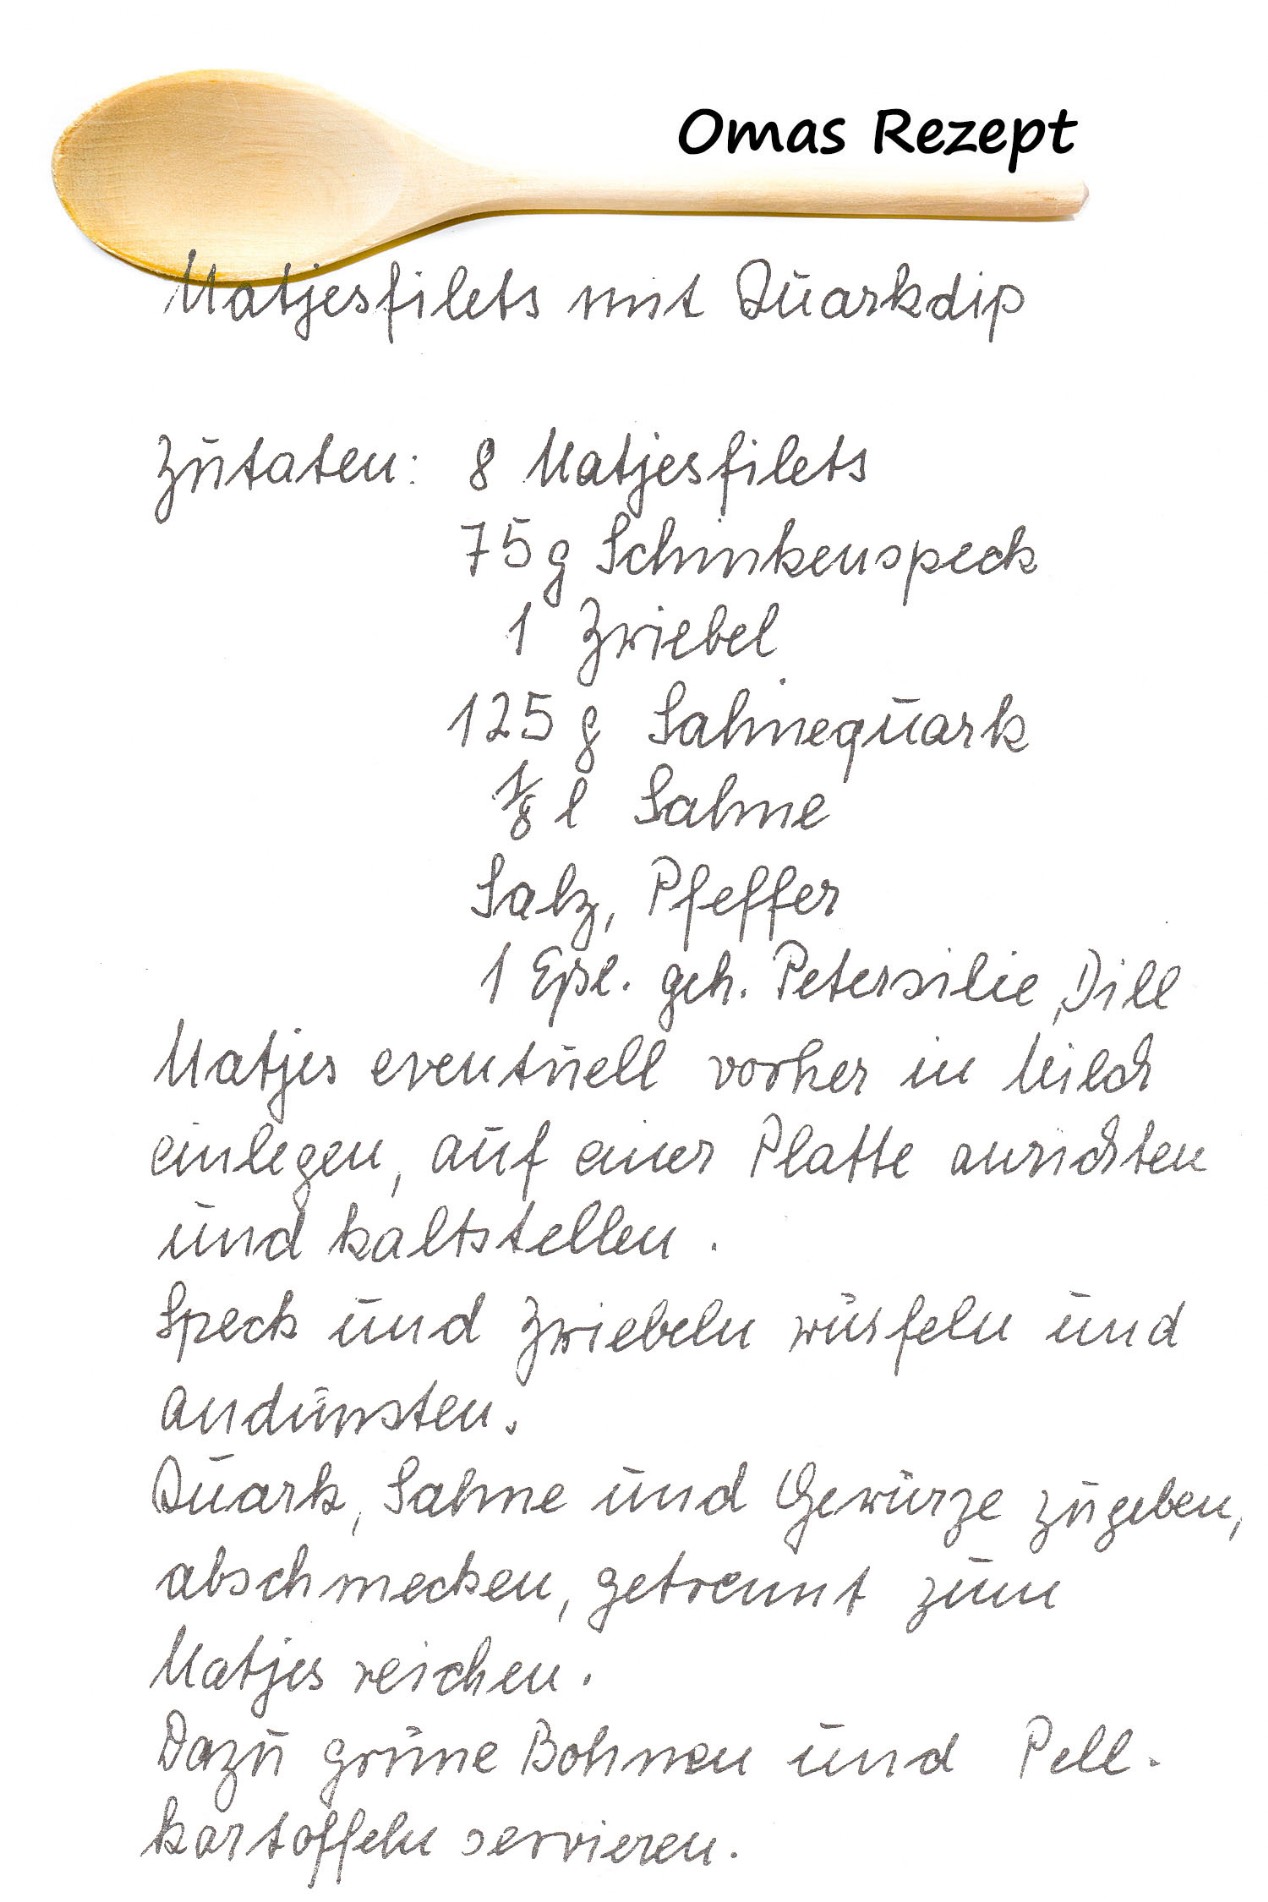 Omas Rezept
Matjesfilets mit Quarkdip
Zutaten: 8 Matjesfilets
75 g Schinkenspeck
1 Zwiebel
125 g Sahnequark
1/8 l Sahne
Salz, Pfeffer
1 Eßl. geh. Petersilie, Dill
Matjes eventuell vorher in Milch
einlegen, auf einer Platte anrichten
und kaltstellen.
Speck und Zwiebeln würfeln und
andünsten.
Quark, Sahne und Gewürze zugeben,
abschmecken, getrennt zum
Matjes reichen.
Dazu grüne Bohnen und Pell-
kartoffeln servieren.